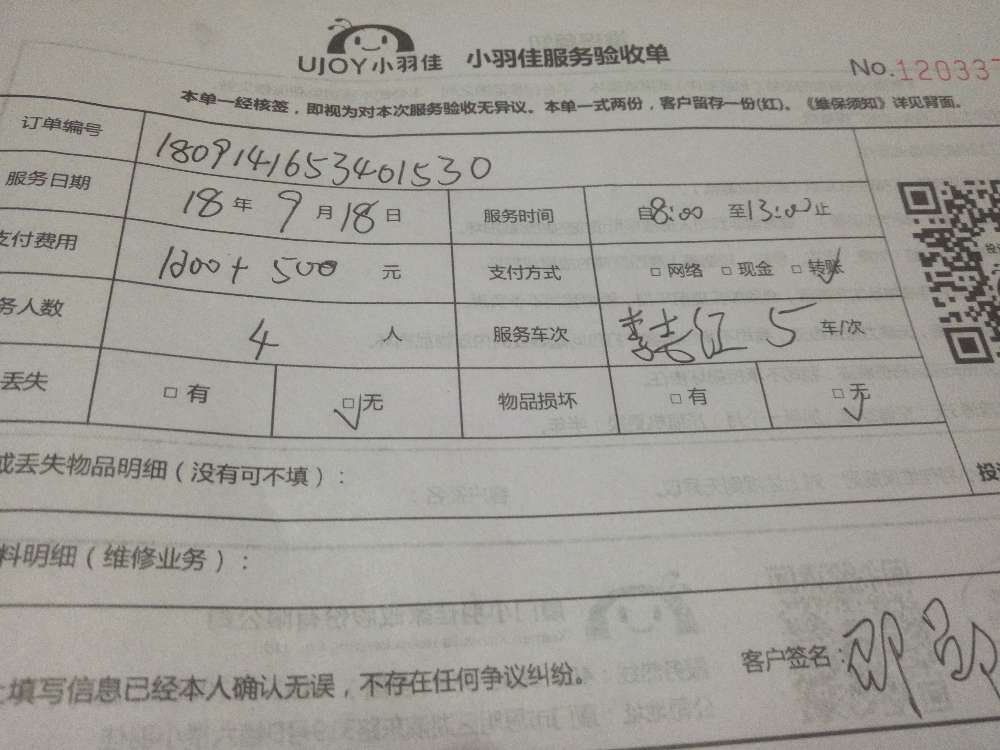 UJOY小羽佳 小羽佳服务验收单 No.120337
本单一经核签，即视为对本次服务验收无异议。本单一式两份，客户留存一份(红)、《维保须知》详见背面。
订单编号 180914165340 1530
服务日期 18年9月18日 服务时间 自8:00至13:00止
支付费用 1200+500 元 支付方式 □网络 □现金 □转账
务人数 4 人 服务车次 5 车/次
丢失 □有 □无 物品损坏 □有 □无
或丢失物品明细（没有可不填）：
投
料明细（维修业务）：
上填写信息已经本人确认无误，不存在任何争议纠纷。 客户签名：